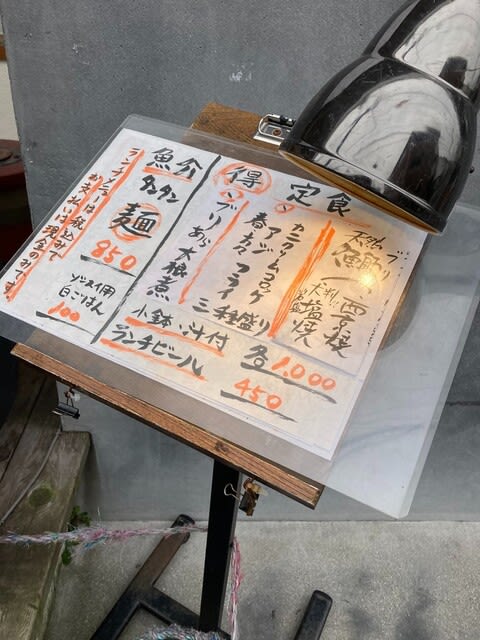 得 定食
天然ブリ
塩焼
カニクリームコロッケ
アジフライ
春巻
三種盛り
ブリあら大根煮
小鉢・汁付 各1.000
ランチビール 450
魚介
タンタン
麺
850
ゾースイ用
白ごはん
100
ランチメニューは税込みで
お支払は現金のみです。